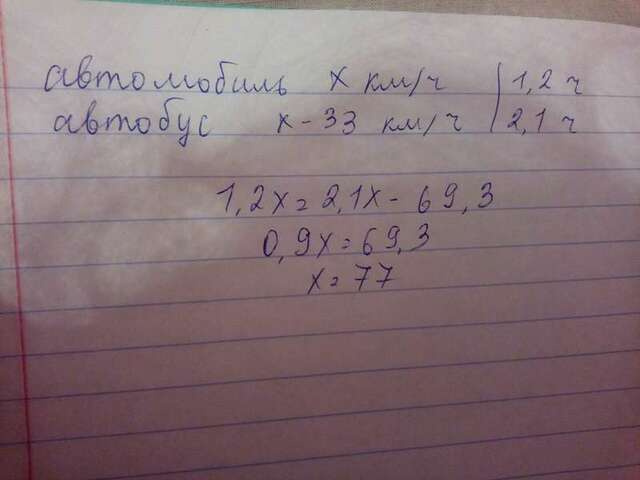 автомобиль х км/ч | 1,2 ч
автобус х - 33 км/ч | 2,1 ч
1,2х = 2,1х - 69,3
0,9х = 69,3
х = 77